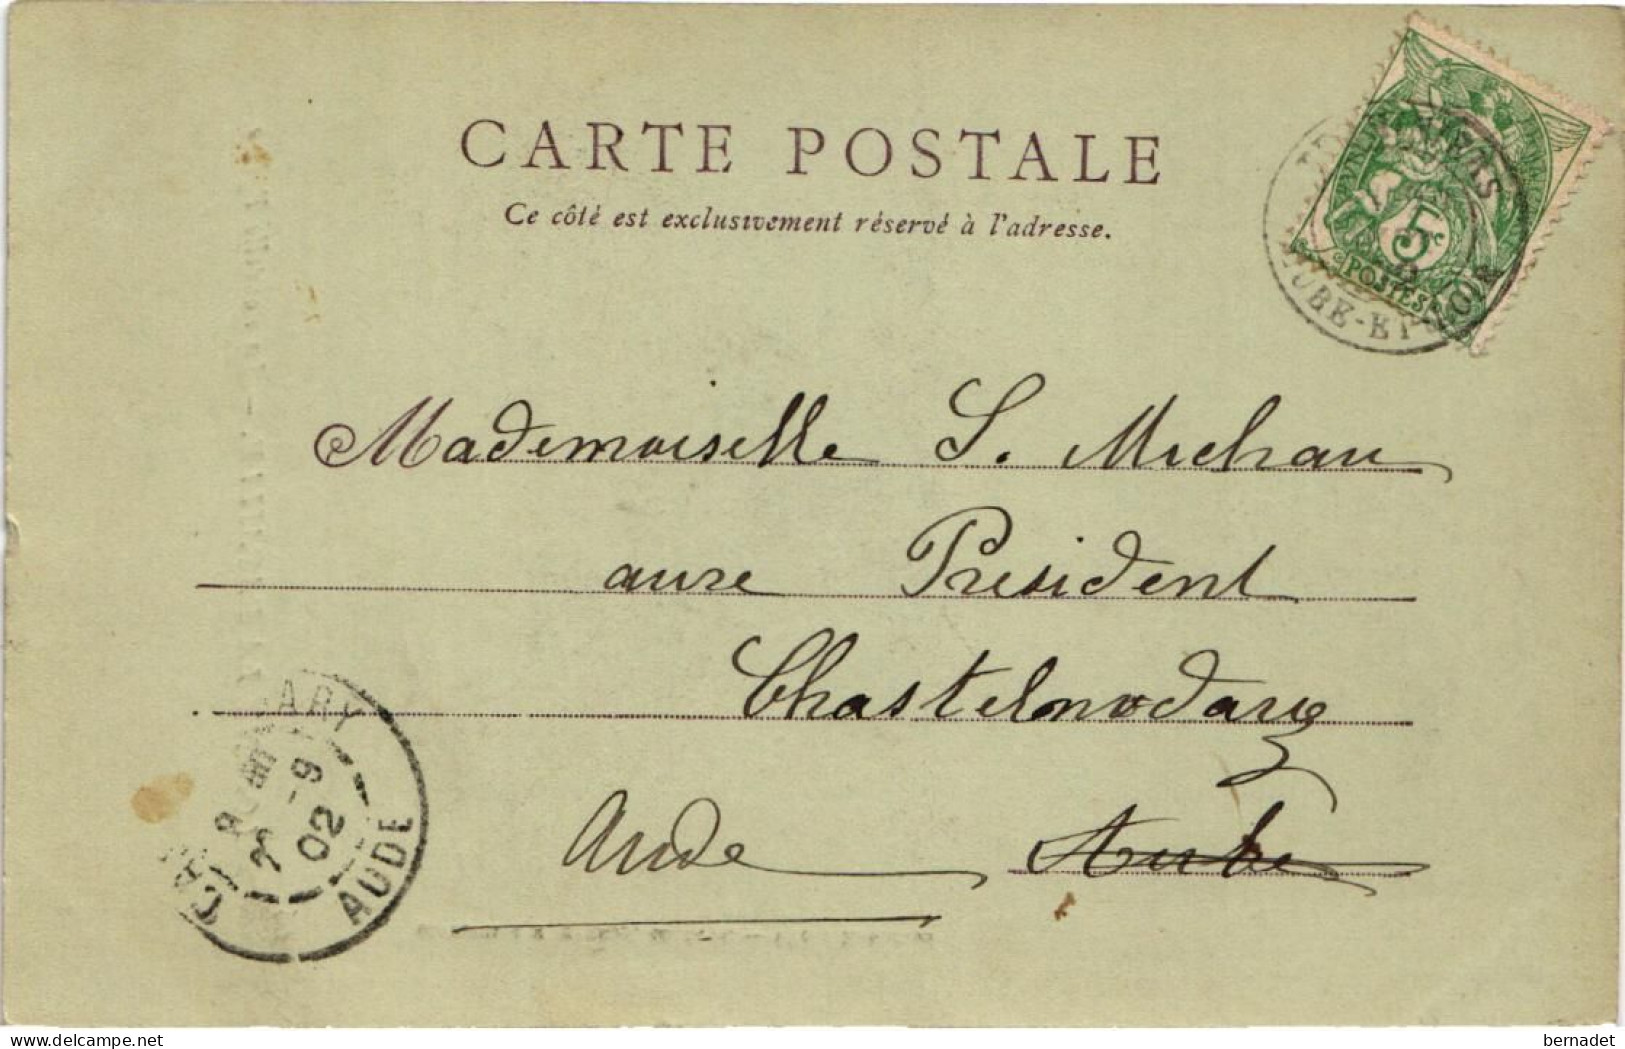 CARTE POSTALE
Ce côté est exclusivement réservé à l'adresse.
5c
POSTES
Mademoiselle S. Michau
aure President
Chastelnodary
Aude Aube
ARY
9
02
AUDE
delcampe.net
bernadet